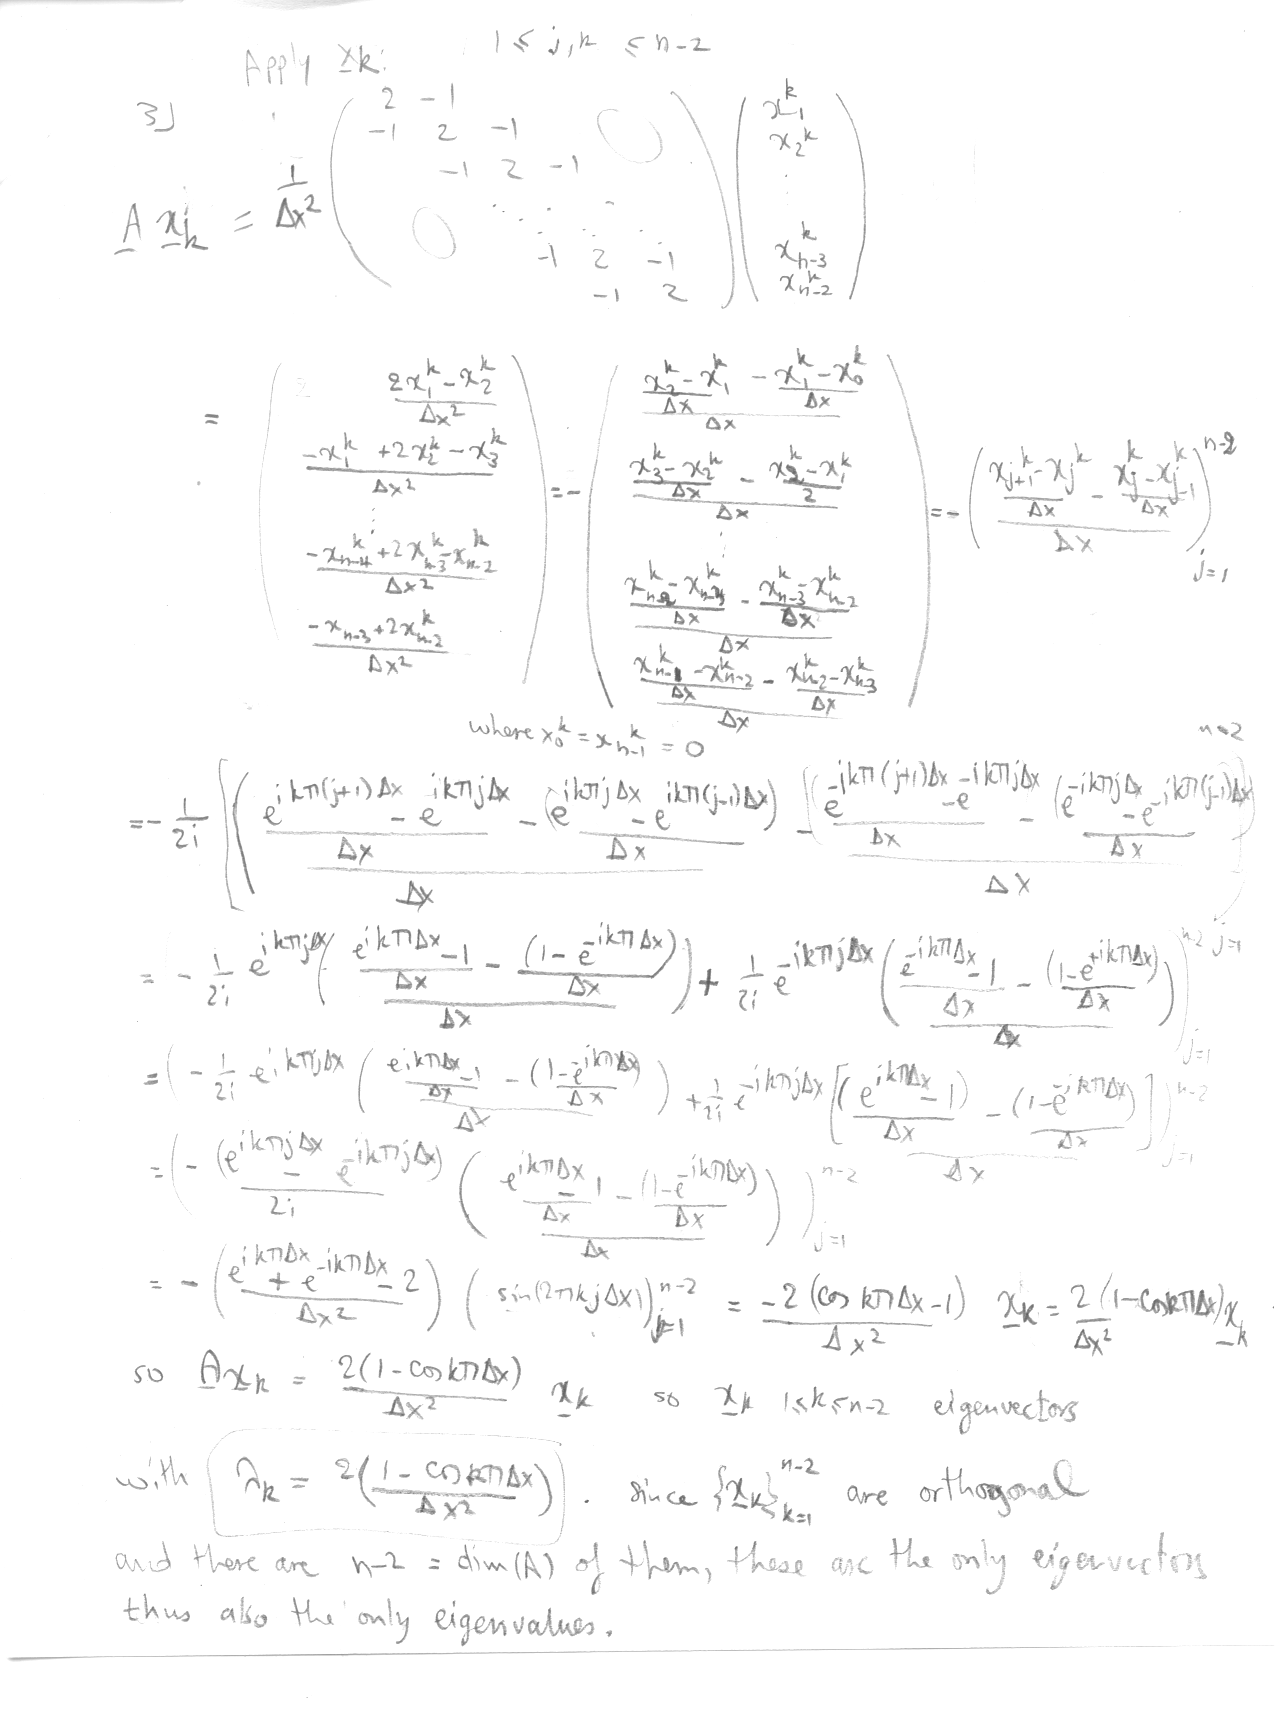 Apply x̲k: 1 ≤ j,k ≤ n-2
3)
A̲ x̲j_k = 1/Δx² ( 2 -1 ; -1 2 -1 ; -1 2 -1 ; 0 ⋱ 0 ; -1 2 -1 ; -1 2 ) ( x_1^k ; x_2^k ; ⋮ ; x_{n-3}^k ; x_{n-2}^k )
= ( (2x_1^k - x_2^k)/Δx² ; (-x_1^k + 2x_2^k - x_3^k)/Δx² ; ⋮ ; (-x_{n-4}^k + 2x_{n-3}^k - x_{n-2}^k)/Δx² ; (-x_{n-3} + 2x_{n-2}^k)/Δx² ) = - ( ((x_2^k - x_1^k)/Δx - (x_1^k - x_0^k)/Δx)/Δx ; ((x_3^k - x_2^k)/Δx - (x_2^k - x_1^k)/2)/Δx ; ⋮ ; ((x_{n-2}^k - x_{n-3}^k)/Δx - (x_{n-3}^k - x_{n-2}^k)/Δx)/Δx ; ((x_{n-1}^k - x_{n-2}^k)/Δx - (x_{n-2}^k - x_{n-3}^k)/Δx)/Δx ) = - ( ((x_{j+1}^k - x_j^k)/Δx - (x_j^k - x_{j-1}^k)/Δx)/Δx )_{j=1}^{n-2}
where x_0^k = x_{n-1}^k = 0
= - 1/2i [ ( (e^{ikπ(j+1)Δx} - e^{ikπjΔx})/Δx - (e^{ikπjΔx} - e^{ikπ(j-1)Δx})/Δx )/Δx - ( (e^{-ikπ(j+1)Δx} - e^{-ikπjΔx})/Δx - (e^{-ikπjΔx} - e^{-ikπ(j-1)Δx})/Δx )/Δx ]_{j=1}^{n-2}
= - 1/2i e^{ikπjΔx} ( ((e^{ikπΔx} - 1)/Δx - (1 - e^{-ikπΔx})/Δx)/Δx ) + 1/2i e^{-ikπjΔx} ( ((e^{-ikπΔx} - 1)/Δx - (1 - e^{+ikπΔx})/Δx)/Δx )_{j=1}^{n-2}
= ( - 1/2i e^{ikπjΔx} ( ((e^{ikπΔx} - 1)/Δx - (1 - e^{-ikπΔx})/Δx)/Δx ) + 1/2i e^{-ikπjΔx} [ ((e^{ikπΔx} - 1)/Δx - (1 - e^{-ikπΔx})/Δx)/Δx ] )_{j=1}^{n-2}
= ( - (e^{ikπjΔx} - e^{-ikπjΔx})/2i ( ((e^{ikπΔx} - 1)/Δx - (1 - e^{-ikπΔx})/Δx)/Δx ) )_{j=1}^{n-2}
= - ( (e^{ikπΔx} + e^{-ikπΔx} - 2)/Δx² ) ( sin(2πkjΔx) )_{j=1}^{n-2} = -2(cos kπΔx - 1)/Δx² x̲k = 2/Δx² (1 - cos kπΔx) x̲k
so A̲x̲k = 2(1 - cos kπΔx)/Δx² x̲k so x̲k 1≤k≤n-2 eigenvectors
with λk = 2(1 - cos kπΔx)/Δx² . since {x̲k}_{k=1}^{n-2} are orthogonal
and there are n-2 = dim(A) of them, these are the only eigenvectors
thus also the only eigenvalues.